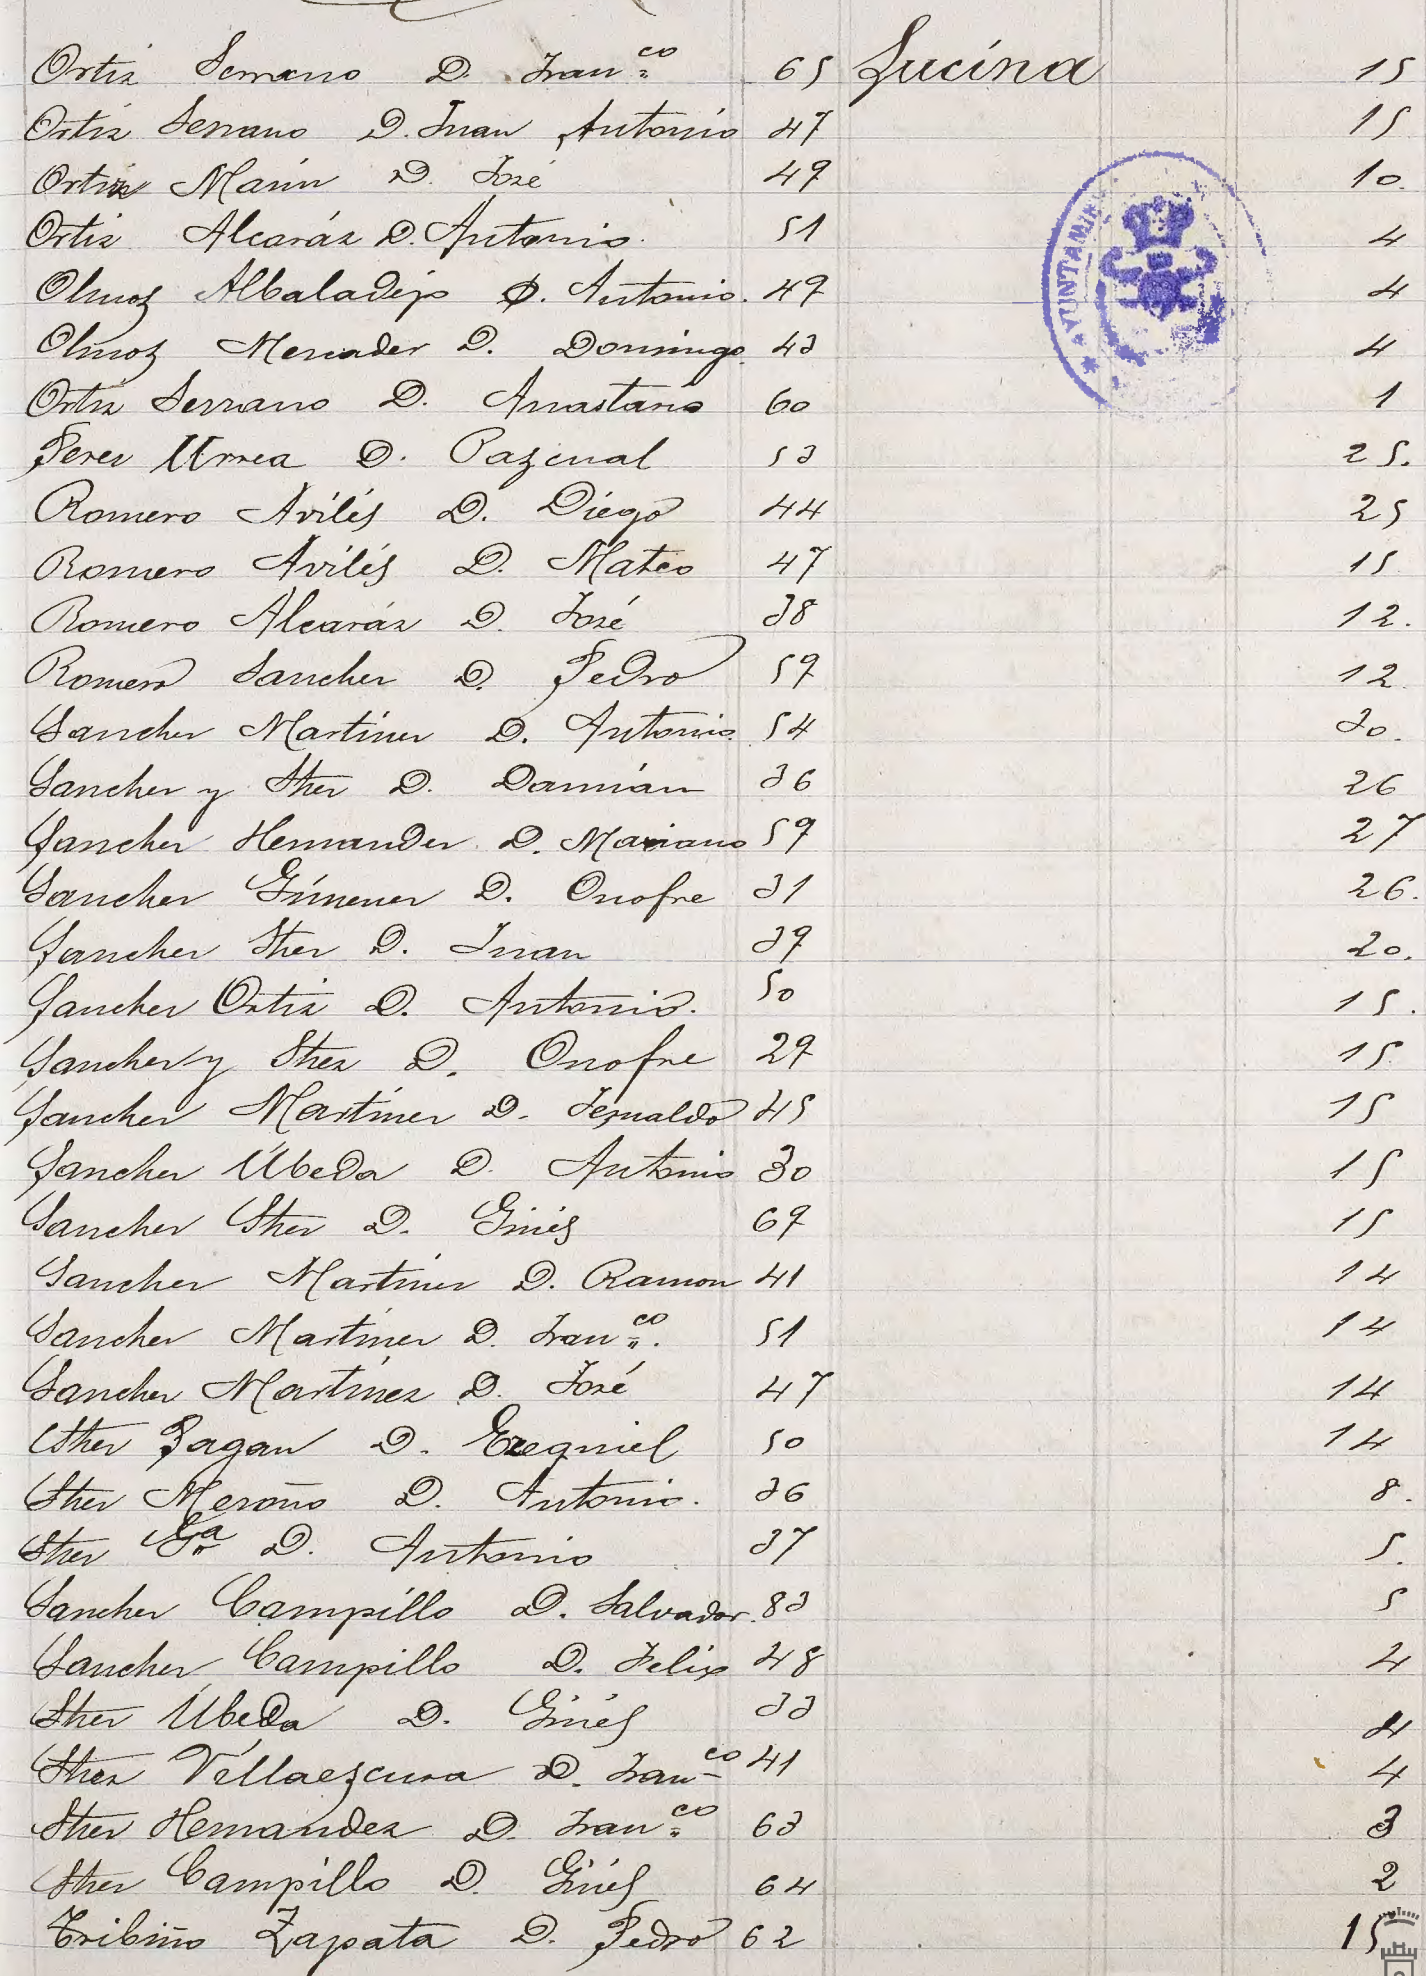 Ortiz Serrano D. Fran.co 65 Lucina 15
Ortiz Serrano D. Juan Antonio 47 15
Ortiz Marin D. José 49 10.
Ortiz Alcaráz D. Antonio. 51 4
Olmoz Albaladejo D. Antonio. 49 4
Olmoz Mercader D. Domingo. 43 4
Ortiz Serrano D. Anastasio 60 1
Perez Urrea D. Pazcual 53 25.
Romero Avilés D. Diego 44 25
Romero Avilés D. Mateo 47 15
Romero Alcaráz D. José 38 12.
Romero Sanchez D. Pedro 59 12
Sanchez Martinez D. Antonio. 54 30.
Sanchez y Shez D. Damián 36 26
Sanchez Hernandez D. Mariano 59 27
Sanchez Gimenez D. Onofre 31 26.
Sanchez Shez D. Juan 39 20.
Sanchez Ortiz D. Antonio. 50 15.
Sanchez y Shez D. Onofre 29 15.
Sanchez Martinez D. 45 15
Sanchez Úbeda D. Antonio 30 15
Sanchez Shez D. Ginés 69 15
Sanchez Martinez D. Ramon 41 14
Sanchez Martinez D. Fran.co 51 14
Sanchez Martinez D. José 47 14
Shez Pagan D. Ezequiel 50 14
Shez Meroño D. Antonio. 36 8.
Shez Ga D. Antonio 37 5.
Sanchez Campillo D. Salvador. 83 5
Sanchez Campillo D. Felix 48 4
Shez Úbeda D. Ginés 33 4
Shez Villaezcusa D. Franco 41 4
Shez Hernandez D. Fran.co 63 3
Shez Campillo D. Ginés 64 2
Tribiño Zapata D. Pedro 62 15
AYUNTAMIE